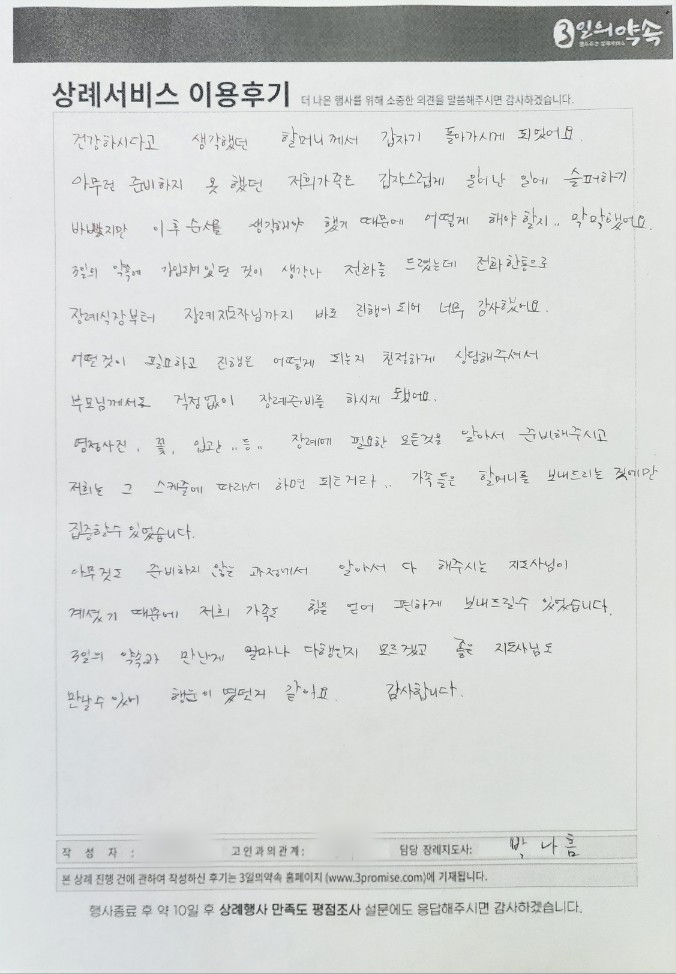 3일의약속
상례서비스 이용후기 더 나은 행사를 위해 소중한 의견을 말씀해주시면 감사하겠습니다.
건강하시다고 생각했던 할머니께서 갑자기 돌아가시게 되었어요.
아무런 준비하지 못 했던 저희가족은 갑작스럽게 일어난 일에 슬퍼하기
바빴지만 이후 순서를 생각해야 했기 때문에 어떻게 해야 할지.. 막막했어요.
3일의 약속에 가입되어있던 것이 생각나 전화를 드렸는데 전화한통으로
장례식장부터 장례지도사님까지 바로 진행이 되어 너무 감사했어요.
어떤것이 필요하고 진행은 어떻게 되는지 친절하게 상담해주셔서
부모님께서도 걱정없이 장례준비를 하시게 됐어요.
영정사진, 꽃, 입관..등.. 장례에 필요한 모든것을 알아서 준비해주시고
저희는 그 스케줄에 따라서 하면 되는거라.. 가족들은 할머니를 보내드리는 것에만
집중할수 있었습니다.
아무것도 준비하지 않은 과정에서 알아서 다 해주시는 지도사님이
계셨기 때문에 저희 가족도 힘을 얻어 편하게 보내드릴수 있었습니다.
3일의 약속과 만난게 얼마나 다행인지 모르겠고 좋은 지도사님도
만날수 있어 행운이 였던거 같아요. 감사합니다.
작 성 자 : 고인과의관계: 담당 장례지도사: 박나흠
본 상례 진행 건에 관하여 작성하신 후기는 3일의약속 홈페이지 (www.3promise.com)에 기재됩니다.
행사종료 후 약 10일 후 상례행사 만족도 평점조사 설문에도 응답해주시면 감사하겠습니다.